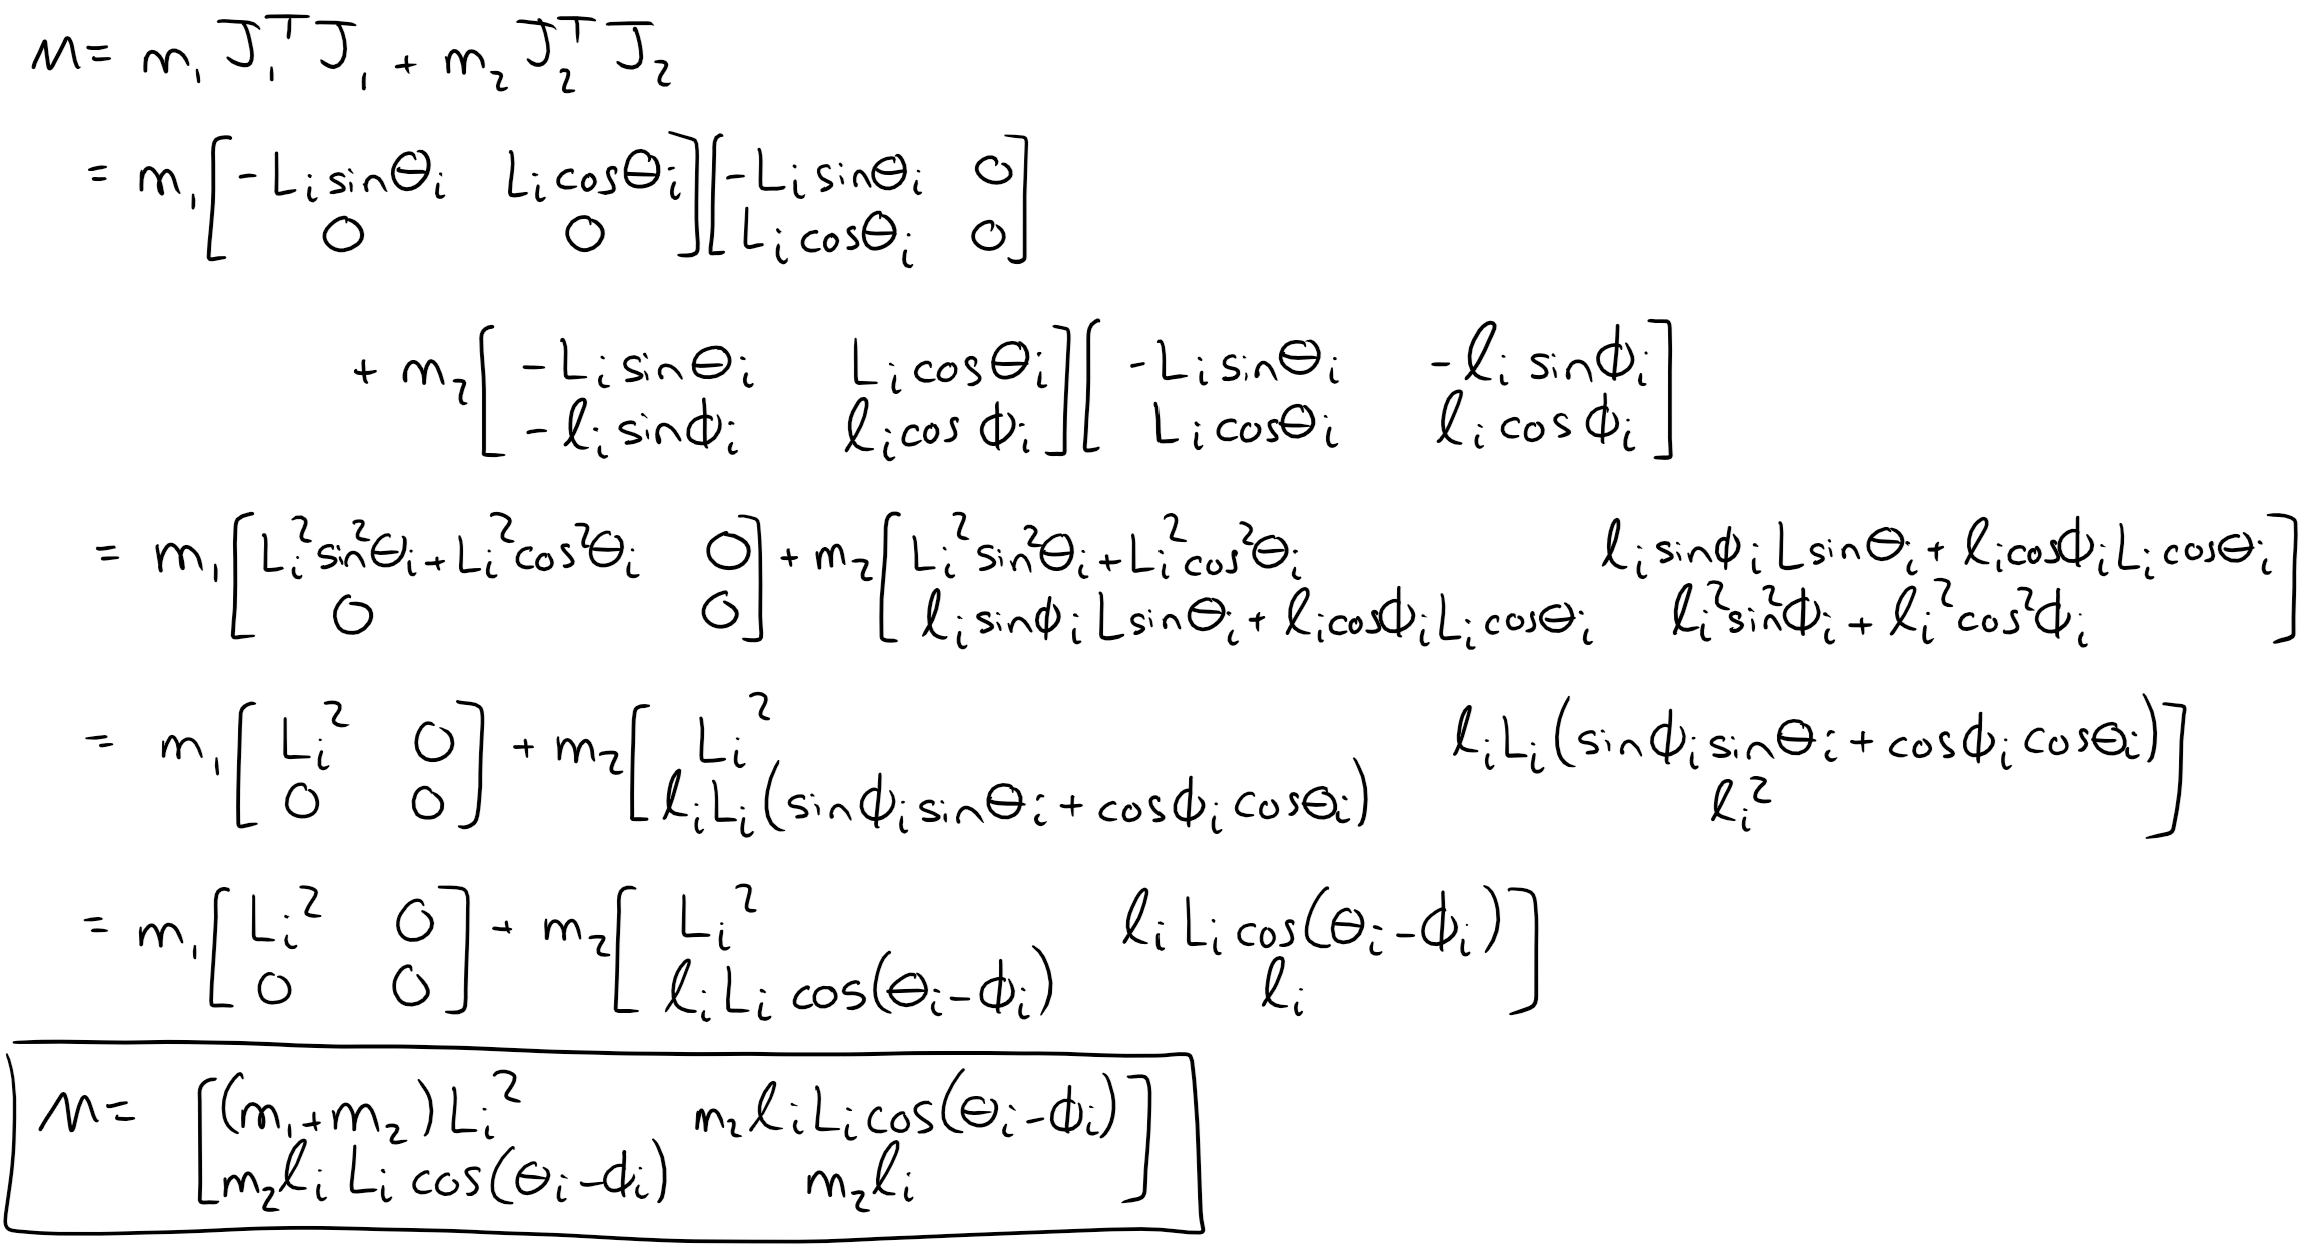 M = m₁ J₁ᵀ J₁ + m₂ J₂ᵀ J₂
= m₁ [ -Lᵢ sinθᵢ  Lᵢ cosθᵢ ; 0  0 ] [ -Lᵢ sinθᵢ  0 ; Lᵢ cosθᵢ  0 ]
+ m₂ [ -Lᵢ sinθᵢ  Lᵢ cosθᵢ ; -ℓᵢ sinϕᵢ  ℓᵢ cosϕᵢ ] [ -Lᵢ sinθᵢ  -ℓᵢ sinϕᵢ ; Lᵢ cosθᵢ  ℓᵢ cosϕᵢ ]
= m₁ [ Lᵢ² sin²θᵢ + Lᵢ² cos²θᵢ  0 ; 0  0 ] + m₂ [ Lᵢ² sin²θᵢ + Lᵢ² cos²θᵢ  ℓᵢ sinϕᵢ L sinθᵢ + ℓᵢ cosϕᵢ Lᵢ cosθᵢ ; ℓᵢ sinϕᵢ L sinθᵢ + ℓᵢ cosϕᵢ Lᵢ cosθᵢ  ℓᵢ² sin²ϕᵢ + ℓᵢ² cos²ϕᵢ ]
= m₁ [ Lᵢ²  0 ; 0  0 ] + m₂ [ Lᵢ²  ℓᵢ Lᵢ (sinϕᵢ sinθᵢ + cosϕᵢ cosθᵢ) ; ℓᵢ Lᵢ (sinϕᵢ sinθᵢ + cosϕᵢ cosθᵢ)  ℓᵢ² ]
= m₁ [ Lᵢ²  0 ; 0  0 ] + m₂ [ Lᵢ²  ℓᵢ Lᵢ cos(θᵢ - ϕᵢ) ; ℓᵢ Lᵢ cos(θᵢ - ϕᵢ)  ℓᵢ ]
M = [ (m₁ + m₂) Lᵢ²  m₂ ℓᵢ Lᵢ cos(θᵢ - ϕᵢ) ; m₂ ℓᵢ Lᵢ cos(θᵢ - ϕᵢ)  m₂ ℓᵢ ]